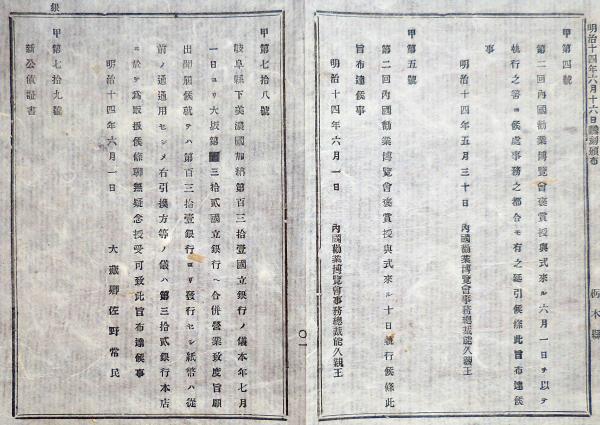 明治十四年六月十六日飜刻頒布
栃木縣
甲第四號
第二回內國勸業博覽會褒賞授與式來ル六月一日ヲ以テ
執行之筈ニ候處事務之都合モ有之延引候條此旨布達候
事
明治十四年五月三十日 內國勸業博覽會事務總裁能久親王
甲第五號
第二回內國勸業博覽會褒賞授與式來ル十日執行候條此
旨布達候事
明治十四年六月一日 內國勸業博覽會事務總裁能久親王
甲第七拾八號
岐阜縣下美濃國加納第百三拾壹國立銀行ノ儀本年七月
一日ヨリ大坂第三拾貳國立銀行ヘ合併營業致度旨願
出聞屆候就テハ第百三拾壹銀行ヨリ發行セシ紙幣ハ從
前ノ通通用セシメ有引換方等ノ儀ハ第三拾貳銀行本店
ニ於テ爲取扱候條聊無疑念授受可致此旨布達候事
明治十四年六月一日
大藏卿佐野常民
甲第七拾九號
新公債証書
銀